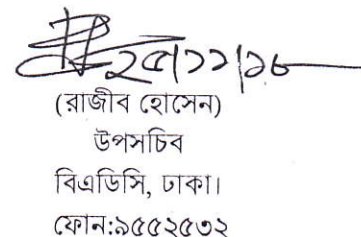 ২৫/১১/১৮
(রাজীব হোসেন)
উপসচিব
বিএডিসি, ঢাকা।
ফোন:৯৫৫২৫৩২